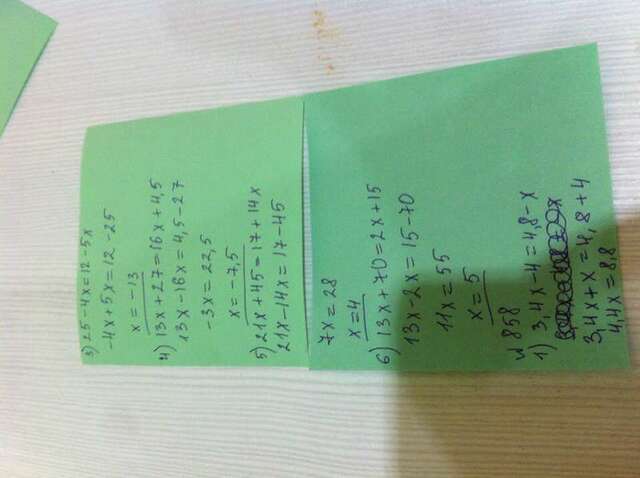 3) 25-4x=12-5x
-4x+5x=12-25
x=-13
4) 13x+27=16x+4,5
13x-16x=4,5-27
-3x=22,5
x=-7,5
5) 21x+45=17+14x
21x-14x=17-45
7x=28
x=4
6) 13x+70=2x+15
13x-2x=15-70
11x=55
x=5
№858
1) 3,4x-4=4,8-x
3,4x+x=4,8+4
4,4x=8,8